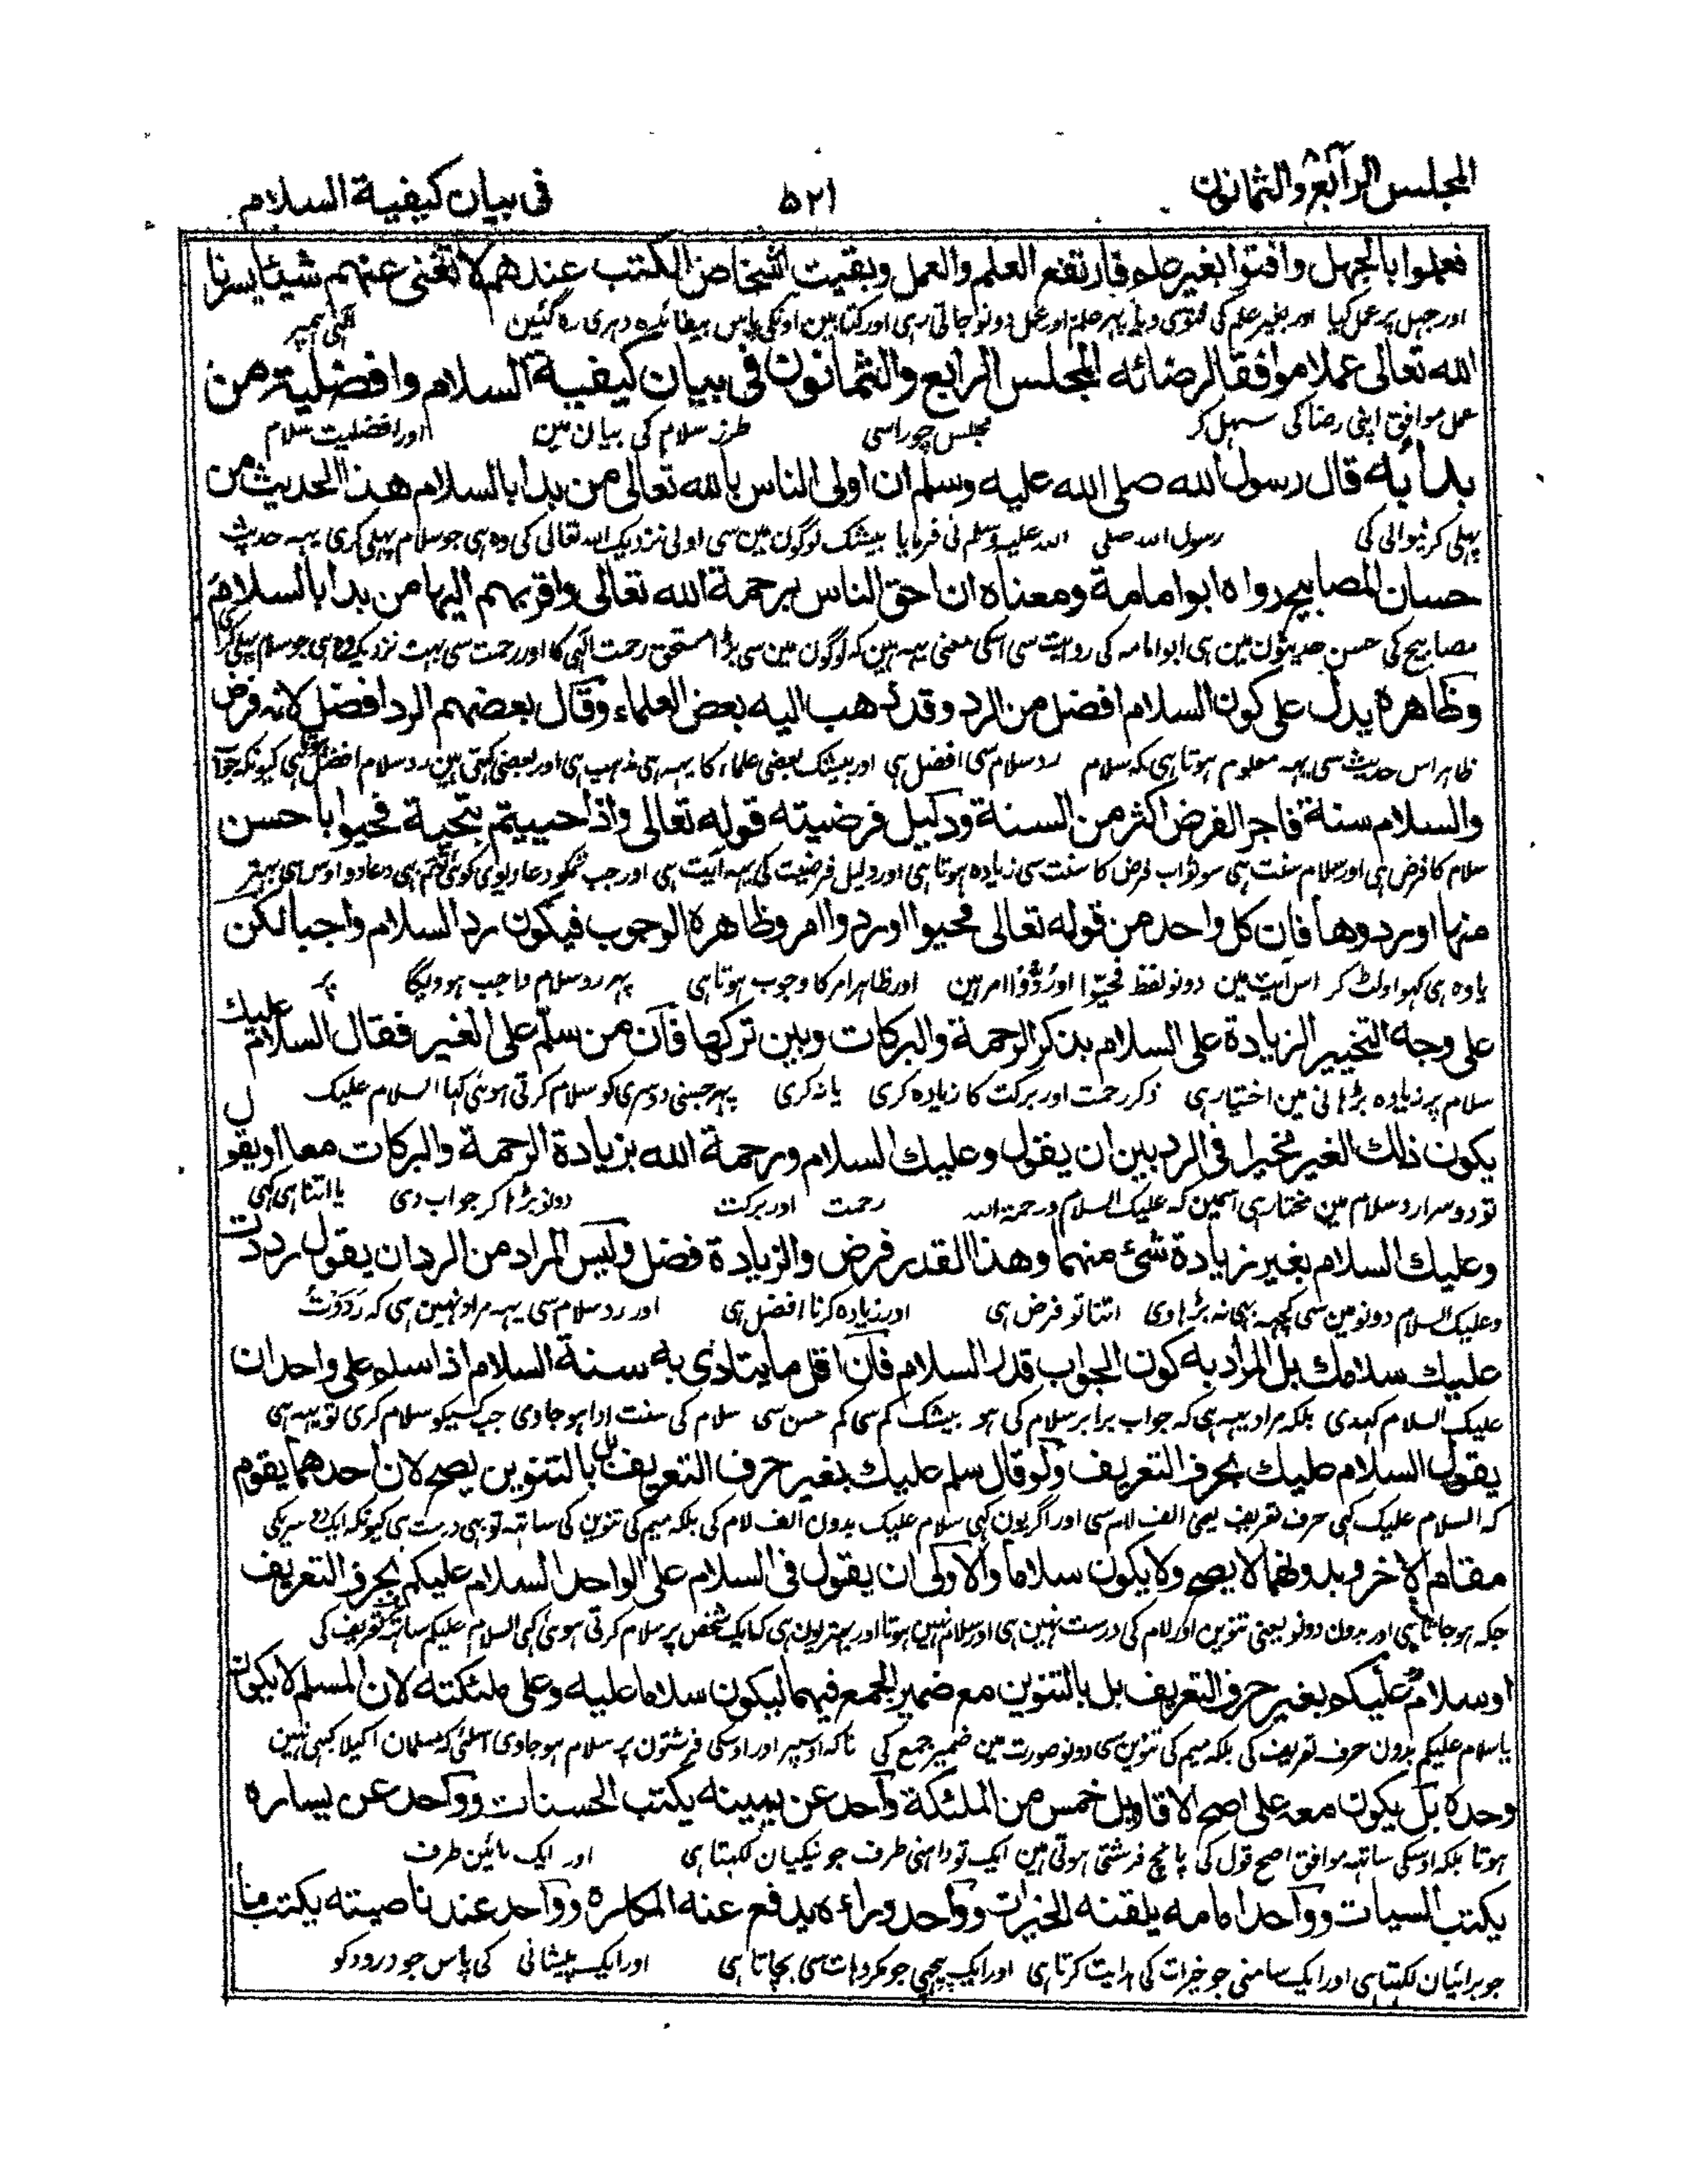 المجلس الرابع والثمانون
٥٢١
فى بيان كيفية السلام
فعملوا بالجهل وافتوا بغير علم فارتفع العلم والعمل وبقيت اشخاص الكتب عندهم لا تغنى عنهم شيئا يسرنا
اور جہل پر عمل کیا اور بغیر علم کی فتوی دیا پہر علم اور عمل دونو جاتی رہی اور کتابین اونکی پاس بیفائدہ دہری رہ گئین الٰہی ہمپر
الله تعالى عملا موافقا لرضائه المجلس الرابع والثمانون فى بيان كيفية السلام وافضلية من
عمل موافق اپنی رضا کی سہل کر مجلس چوراسی طرز سلام کی بیان مین اور افضلیت سلام
بدأ به قال رسول الله صلى الله عليه وسلم ان اولى الناس بالله تعالى من بدأ بالسلام هذا الحديث من
پہلی کرنیوالی کی رسول اللہ صلی اللہ علیہ وسلم نی فرمایا بیشک لوگون مین سی اولی نزدیک اللہ تعالی کی وہ ہی جو سلام پہلی کری یہہ حدیث
حسان المصابيح رواه ابو امامة ومعناه ان احق الناس برحمة الله تعالى واقربهم اليها من بدأ بالسلام
مصابیح کی حسن حدیثون مین ہی ابو امامہ کی روایت سی اسکی معنی یہہ ہین کہ لوگون مین سی بڑا مستحق رحمت الٰہی کا اور رحمت سی بہت نزدیک وہ ہی جو سلام پہلی کری
وظاهره يدل على كون السلام افضل من الرد وقد ذهب اليه بعض العلماء وقال بعضهم الرد افضل لانه فرض
ظاہر اس حدیث سی یہہ معلوم ہوتا ہی کہ سلام رد سلام سی افضل ہی اور بیشک بعضی علماء کا یہہ ہی مذہب ہی اور بعضی کہتی ہین رد سلام افضل ہی کیونکہ جواب
والسلام سنة فاجر الفرض اكثر من السنة ودليل فرضيته قوله تعالى واذا حييتم بتحية فحيوا باحسن
سلام کا فرض ہی اور سلام سنت ہی سو ثواب فرض کا سنت سی زیادہ ہوتا ہی اور دلیل فرضیت کی یہہ آیت ہی اور جب تمکو دعا دیوی کوئی تو تم بہی دعا دو اوس سی بہتر
منها او ردوها فان كل واحد من قوله تعالى فحيوا او ردوا امر وظاهره الوجوب فيكون رد السلام واجبا لكن
یا وہ ہی کہو اولٹ کر اس آیت مین دونو لفظ فحیوا اور ردوا امر ہین اور ظاہر امر کا وجوب ہوتا ہی پہر رد سلام واجب ہوویگا پر
على وجه التخيير الزيادة على السلام بذكر الرحمة والبركات وبين تركها فان من سلم على الغير فقال السلام عليك
سلام پر زیادہ بڑہانی مین اختیار ہی ذکر رحمت اور برکت کا زیادہ کری یا نہ کری پہر جسنی دوسری کو سلام کرتی ہوئی کہا السلام علیک
يكون ذلك الغير مخيرا فى الرد بين ان يقول وعليك السلام ورحمة الله بزيادة الرحمة والبركات معا او يقول
تو دوسرا رد سلام مین مختار ہی اسمین کہ علیک السلام ورحمۃ اللہ رحمت اور برکت دونو بڑہا کر جواب دی یا اتنا ہی کہی
وعليك السلام بغير زيادة شئ منهما وهذا القدر فرض والزيادة فضل وليس المراد من الرد ان يقول رددت
وعلیک السلام دونو مین سی کچہہ بہی نہ بڑہاوی اتنا تو فرض ہی اور زیادہ کرنا افضل ہی اور رد سلام سی یہہ مراد نہین ہی کہ رددت
عليك سلامك بل المراد به كون الجواب قدر السلام فان اقل ما يتادى به سنة السلام اذا سلم على واحد ان
علیک السلام کہدی بلکہ مراد یہہ ہی کہ جواب برابر سلام کی ہو بیشک کم سی کم جس سی سلام کی سنت ادا ہو جاوی جب کسیکو سلام کری تو یہہ ہی
يقول السلام عليك بحرف التعريف ولو قال سلم عليك بغير حرف التعريف بل بالتنوين يصح لان احدهما يقوم
کہ السلام علیک کہی حرف تعریف یعنی الف لام سی اور اگر یون کہی سلام علیک بدون الف لام کی بلکہ میم کی تنوین کی ساتہہ تو بہی درست ہی کیونکہ ایک دوسریکی
مقام الاخر وبدونهما لا يصح ولا يكون سلاما والاولى ان يقول فى السلام على الواحد السلام عليكم بحرف التعريف
جگہ ہو جاتا ہی اور بدون دونو یعنی تنوین اور لام کی درست نہین ہی اور سلام نہین ہوتا اور بہتر یون ہی کہ ایک شخص پر سلام کرتی ہوئی کہی السلام علیکم ساتہہ حرف تعریف کی
او سلام عليكم بغير حرف التعريف بل بالتنوين مع ضمير الجمع فيهما ليكون سلاما عليه وعلى ملئكته لان المسلم لا يكون
یا سلام علیکم بدون حرف تعریف کی بلکہ میم کی تنوین سی دونو صورت مین ضمیر جمع کی تاکہ اوسپر اور اوسکی فرشتون پر سلام ہو جاوی اسلئی کہ مسلمان اکیلا کبہی نہین
وحده بل يكون معه على اصح الاقاويل خمس من الملئكة واحد عن يمينه يكتب الحسنات وواحد عن يساره
ہوتا بلکہ اوسکی ساتہہ موافق اصح قول کی پانچ فرشتی ہوتی ہین ایک تو داہنی طرف جو نیکیان لکہتا ہی اور ایک بائین طرف
يكتب السيات وواحد امامه يلقنه الخيرات وواحد وراءه يدفع عنه المكاره وواحد عند ناصيته يكتب ما
جو برائیان لکہتا ہی اور ایک سامنی جو خیرات کی ہدایت کرتا ہی اور ایک پیچہی جو مکروہات سی بچاتا ہی اور ایک پیشانی کی پاس جو درود کو